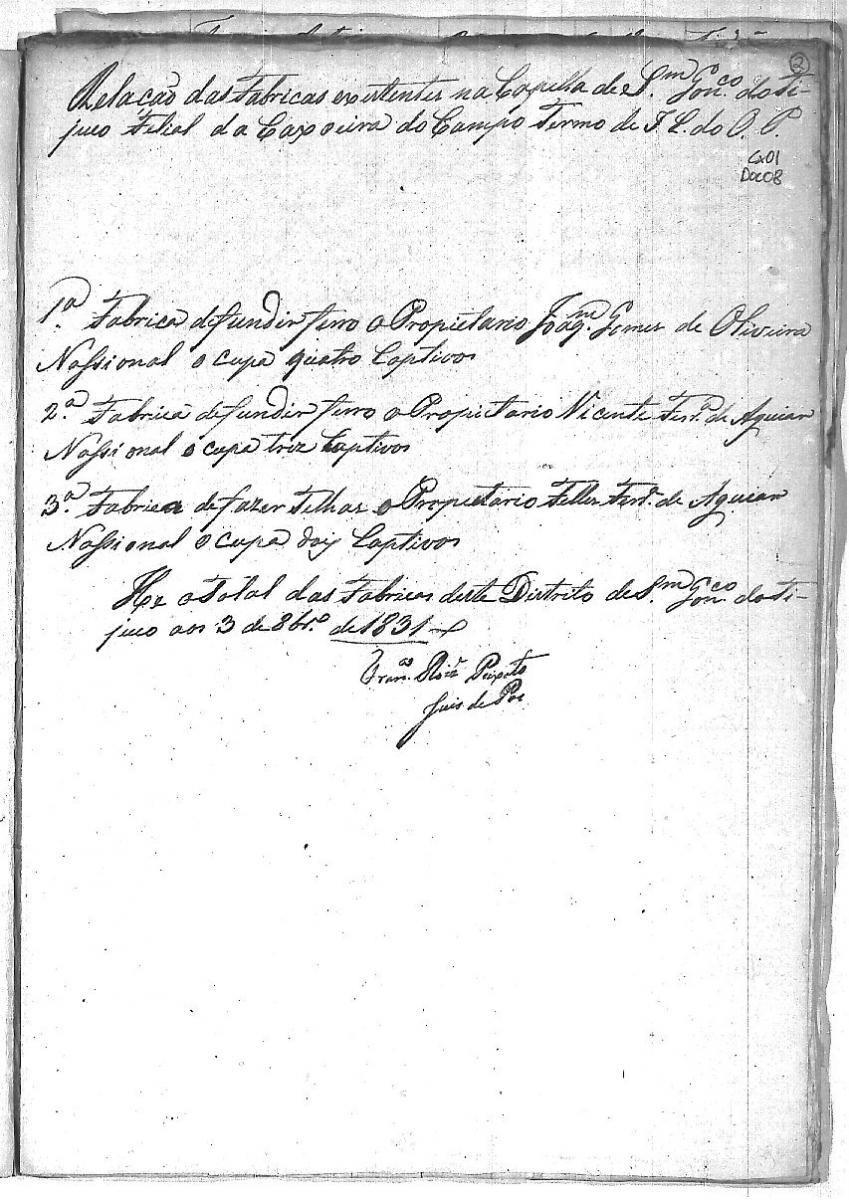 ②
Relação das Fabricas existentes na Capella de S.m Gon.co do Ti-
juco Filial da Caxoeira do Campo Termo de I. C. do O. P.
Cx01
Doc08
1.a Fabrica de fundir ferro o Propietario Joaq.m Gomes de Oliveira
Nassional ocupa quatro Captivos
2.a Fabrica de fundir ferro o Propietario Vicente Fer.a de Aguiar
Nassional ocupa trez Captivos
3.a Fabrica de fazer Telhas o Propietario Telles Fer.a de Aguiar
Nassional ocupa doiz Captivos
He o Total das Fabricas deste Districto de S.m Gon.co do Ti-
juco aos 3 de 8br.o de 1831
Fran.co Roiz Peixoto
Juis de Paz